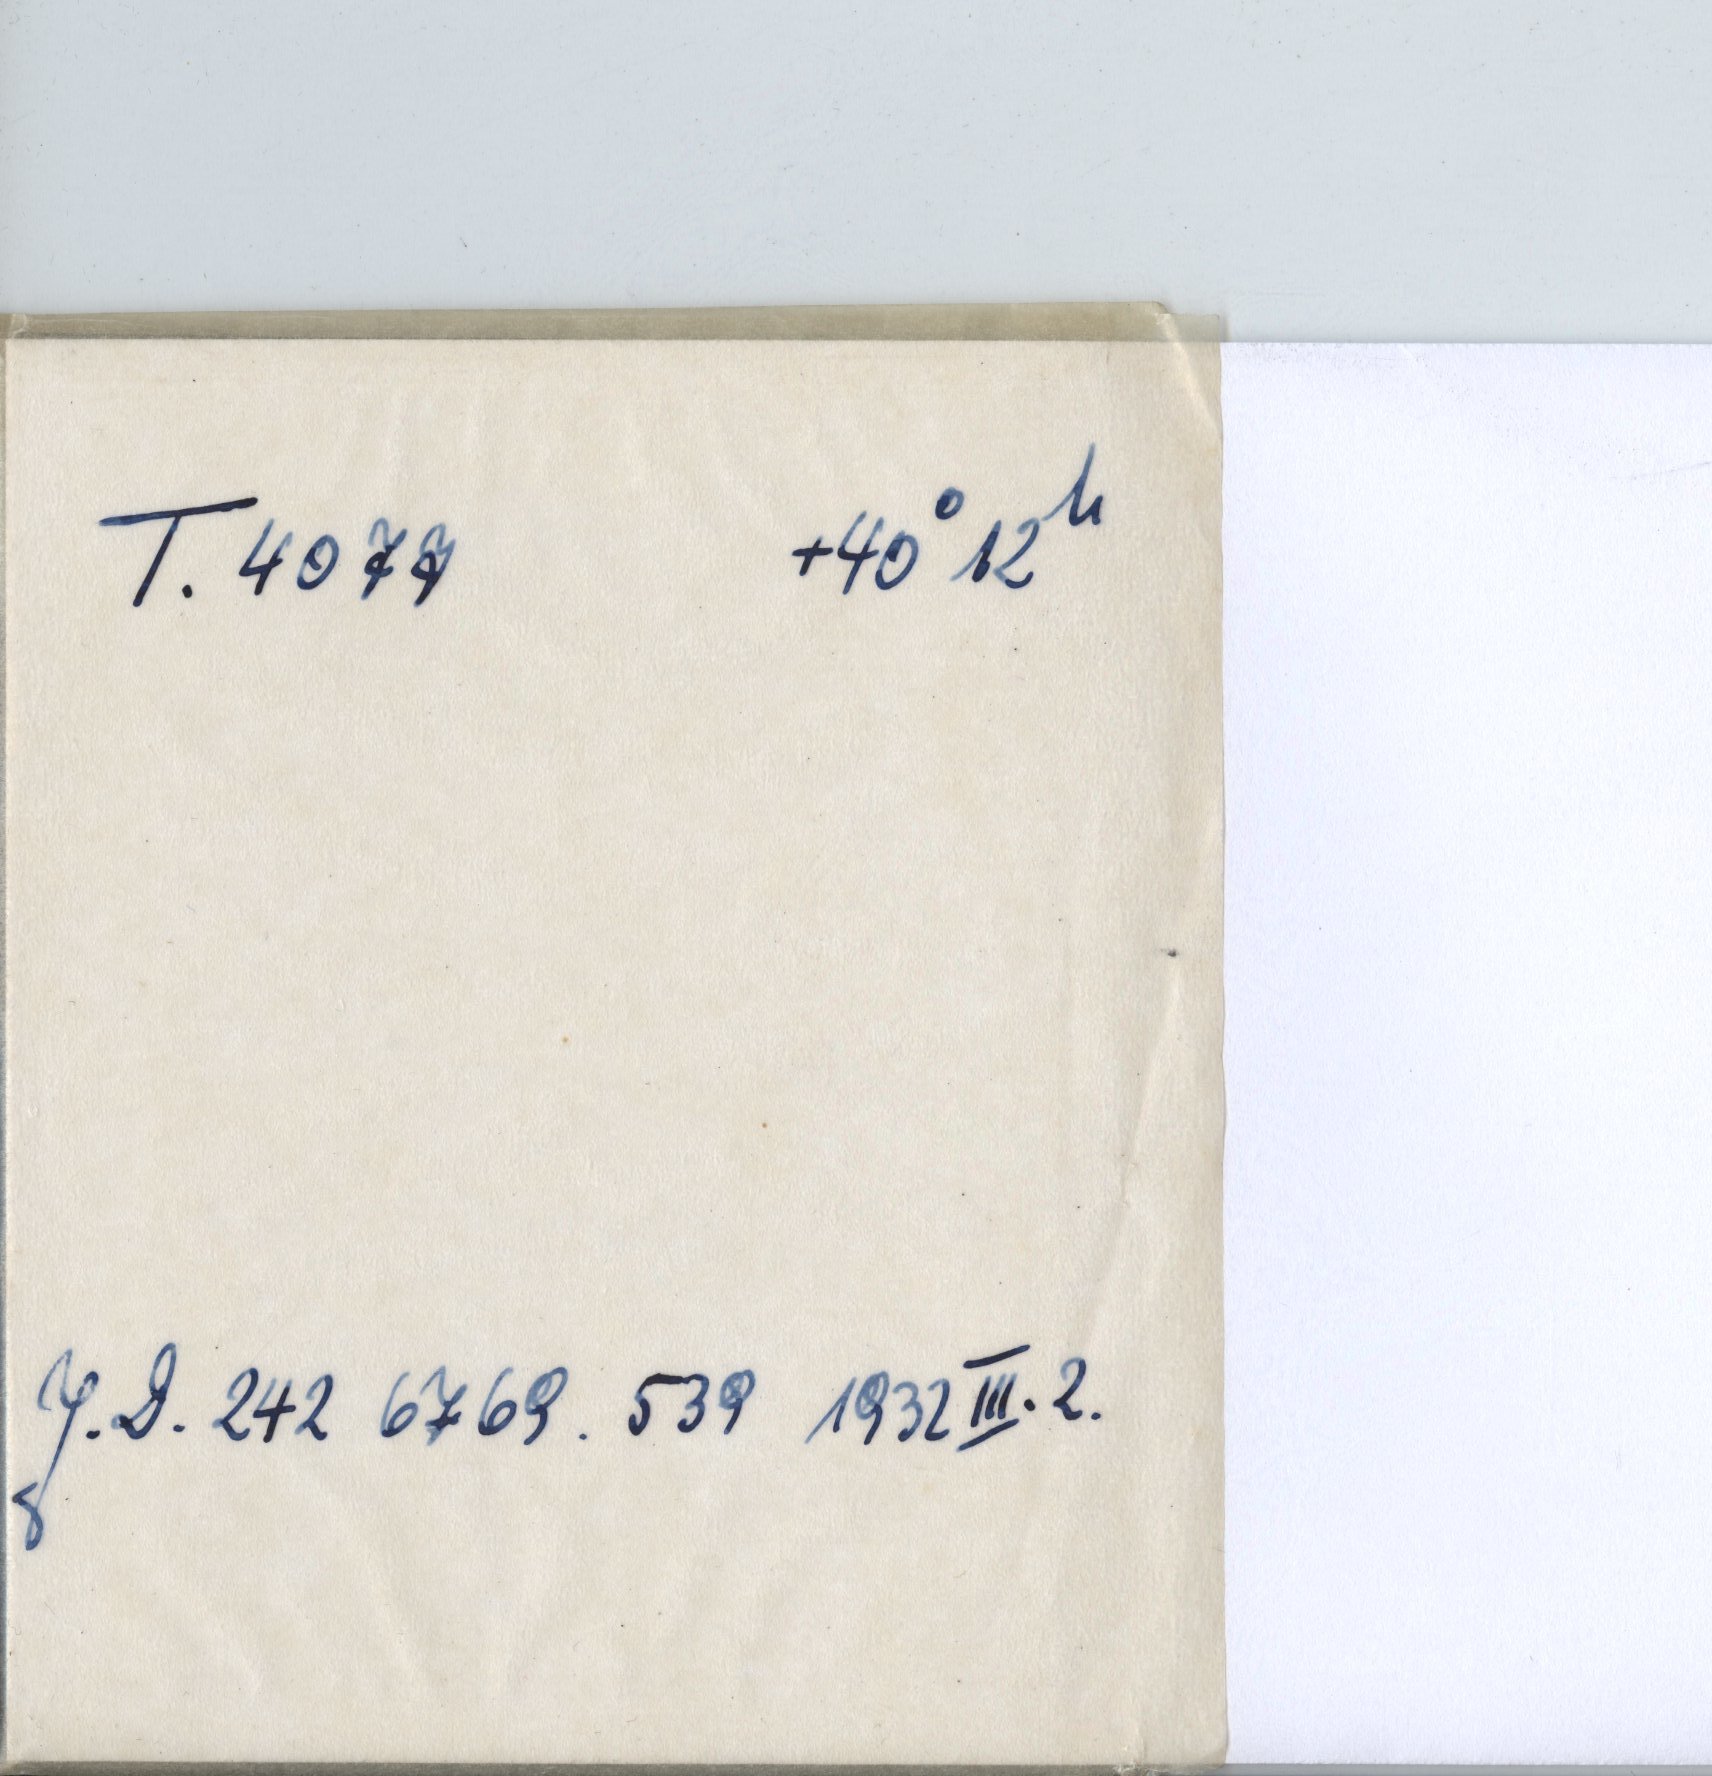 T. 4077 +40° 12h
J.D. 242 6769. 539 1932 III. 2.